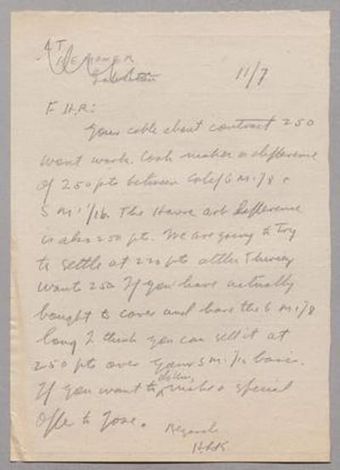 AT
11/7
F H.K:
Your cable about contract 250
wont work. Cash makes a difference
of 250 pts between Calif 6 M 1/8 &
5 M 1/16. The Havre arb difference
is also 250 pts. We are going to try
to settle at 220 pts altho they
want 250 If you have actually
bought to cover and have the 6 M 1/8
long I think you can sell it at
250 pts over your 5 M 1/16 basis.
If you want to make a special
offer to Jose.
Regards
HLK